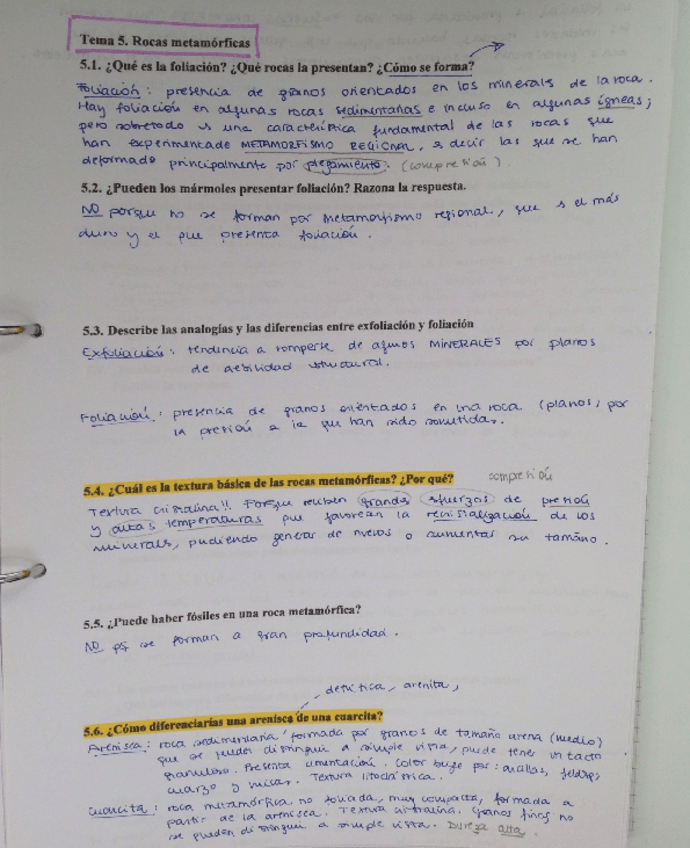 Tema 5. Rocas metamórficas
5.1. ¿Qué es la foliación? ¿Qué rocas la presentan? ¿Cómo se forma?
Foliación: presencia de granos orientados en los minerals de la roca.
Hay foliación en algunas rocas sedimentarias e incluso en algunas ígneas;
pero sobretodo es una característica fundamental de las rocas que
han experimentado METAMORFISMO REGIONAL, es decir las que se han
deformado principalmente por plegamiento. (compresión)
5.2. ¿Pueden los mármoles presentar foliación? Razona la respuesta.
NO porque no se forman por metamorfismo regional, que es el más
duro y el que presenta foliación.
5.3. Describe las analogías y las diferencias entre exfoliación y foliación
Exfoliación: tendencia a romperse de algunos MINERALES por planos
de debilidad estructural.
Foliación: presencia de granos orientados en una roca (planos) por
la presión a la que han sido sometidas.
5.4. ¿Cuál es la textura básica de las rocas metamórficas? ¿Por qué?
compresión
Textura cristalina!! Porque reciben grandes esfuerzos de presión
y altas temperaturas que favorecen la recristalización de los
minerals, pudiendo generar de nuevos o aumentar su tamaño.
5.5. ¿Puede haber fósiles en una roca metamórfica?
NO pq se forman a gran profundidad.
detrítica, arenita,
5.6. ¿Cómo diferenciarías una arenisca de una cuarcita?
Arenisca: roca sedimentaria formada por granos de tamaño arena (medio)
que se pueden distinguir a simple vista, puede tener un tacto
granuloso. Presenta cimentación. Color beige por: arcillas, feldsp,
cuarzo y micas. Textura litoclástica.
Cuarcita: roca metamórfica no foliada, muy compacta, formada a
partir de la arenisca. Textura cristalina. Granos finos no
se pueden distinguir a simple vista. Dureza alta.